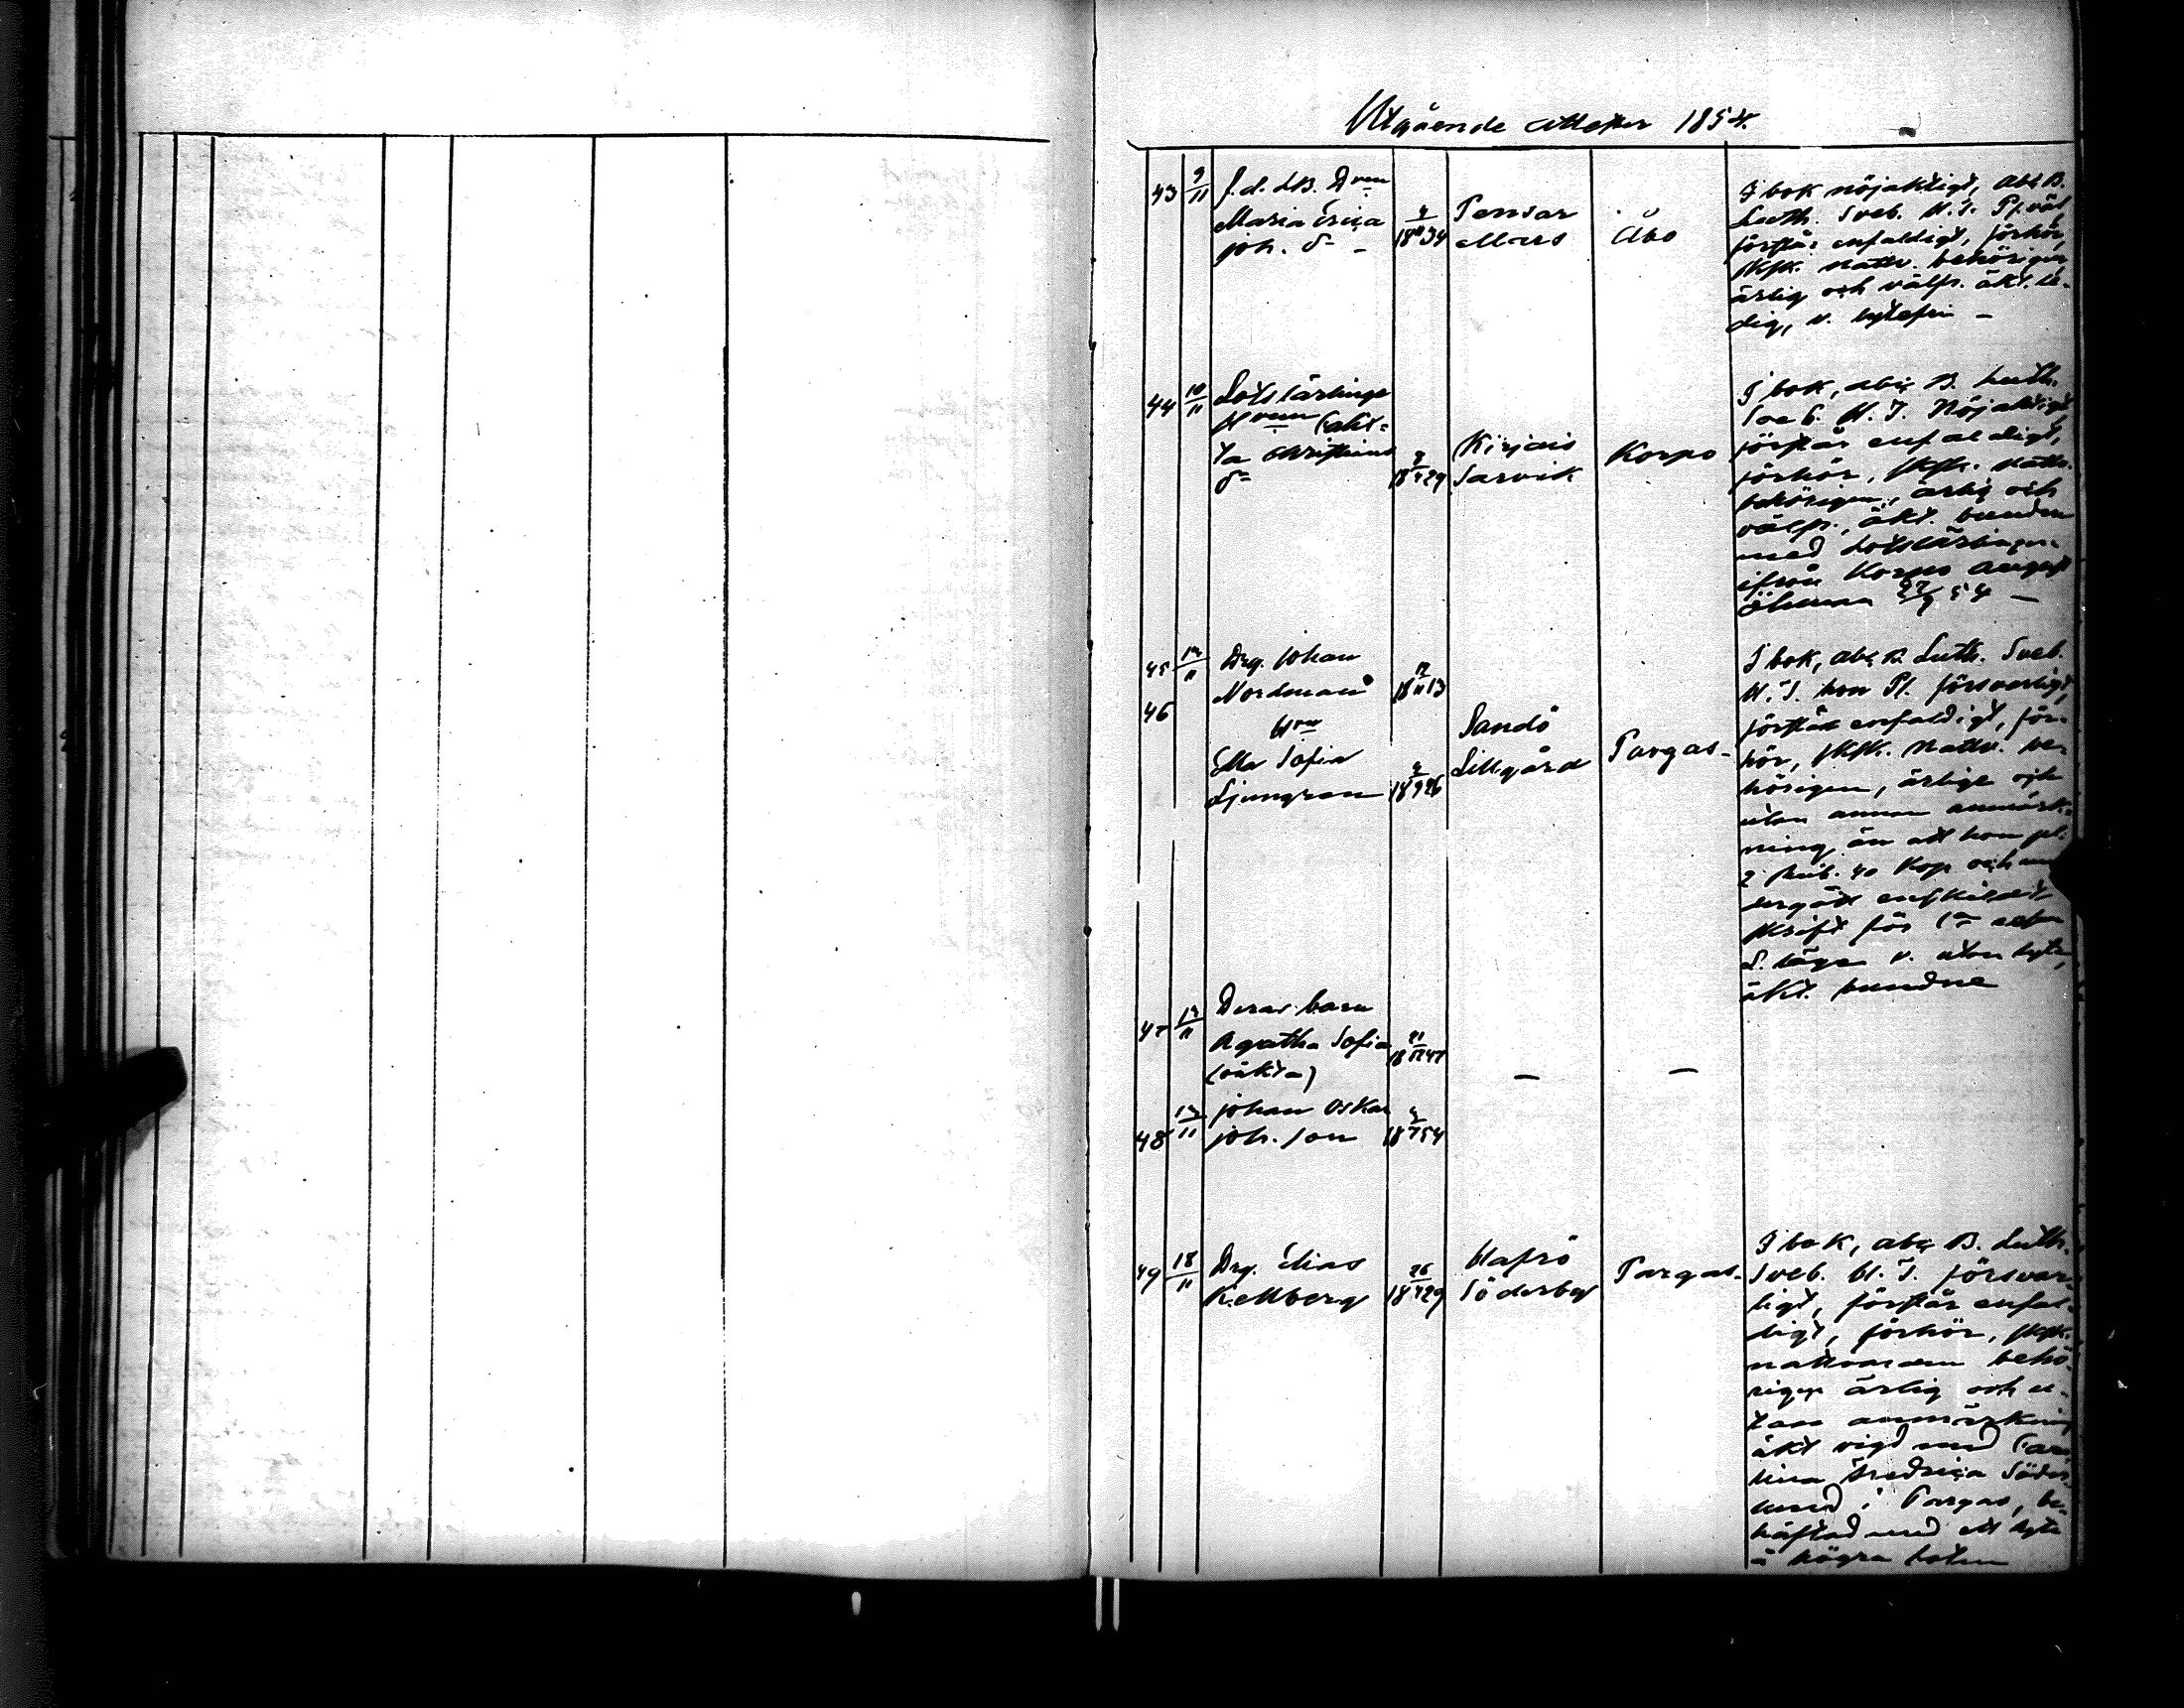 Utgående attester 1854.
43 9/11 f.d. LB. Dren
Maria Erica
joh. dr
4/11 1834
Pensar
Mars
Åbo
I bok nöjaktigt, abc B.
Luth. Sveb. H.T. Ps. väl
förstår enfaldigt, förhör,
skfk. nattv. behörigen
ärlig och välfr. äkt. le-
dig, v. lytefri –
44 10/11 Lotslärlinge
Hrun Calis-
ta Christians
dr
1829
Kirjais
Sarvik
Korpo
I bok, abc B. Luth.
Sveb. H.T. Nöjaktigt
förstår enfaldigt,
förhör, skfk. nattv.
behörigen, ärlig och
välfr., äkt. bunden
med Lotslärlingen
ifrån Korpo August
Öhman 27/9 54 –
45 13/11 Drg. Johan
Nordman
12/11 1813
46
Hru
Ulla Sofia
Ljungren
1826
Sandö
Lillgård
Pargas
I bok, abc B. Luth. Sveb.
H.T. hon Ps. försvarligt,
förstår enfaldigt, för-
hör, skfk. nattv. be-
hörigen, ärlige och
utan annan anmärk-
ning än att hon pl.
2 Rub. 40 kop och un
dergått enskildt
skrift för
L. läge v. utan lyte,
äkt. bundne
47 13/11 Deras barn
Agatha Sofia
(oäkta)
21/12 1847
– –
48 13/11 Johan Oskar
joh. son
1854
49 18/11 Drg. Elias
Kellberg
26 1829
Hafrö
Söderby
Pargas
I bok, abc B. Luth.
Sveb. H.T. försvar
ligt, förstår enfal-
digt, förhör, skfk.
nattvarden behö
rigen ärlig och u-
tan anmärkning
äkt vigd med Caro
lina Fredrica Söder
lund i Pargas, be-
häftad med ett lyte
i högra foten